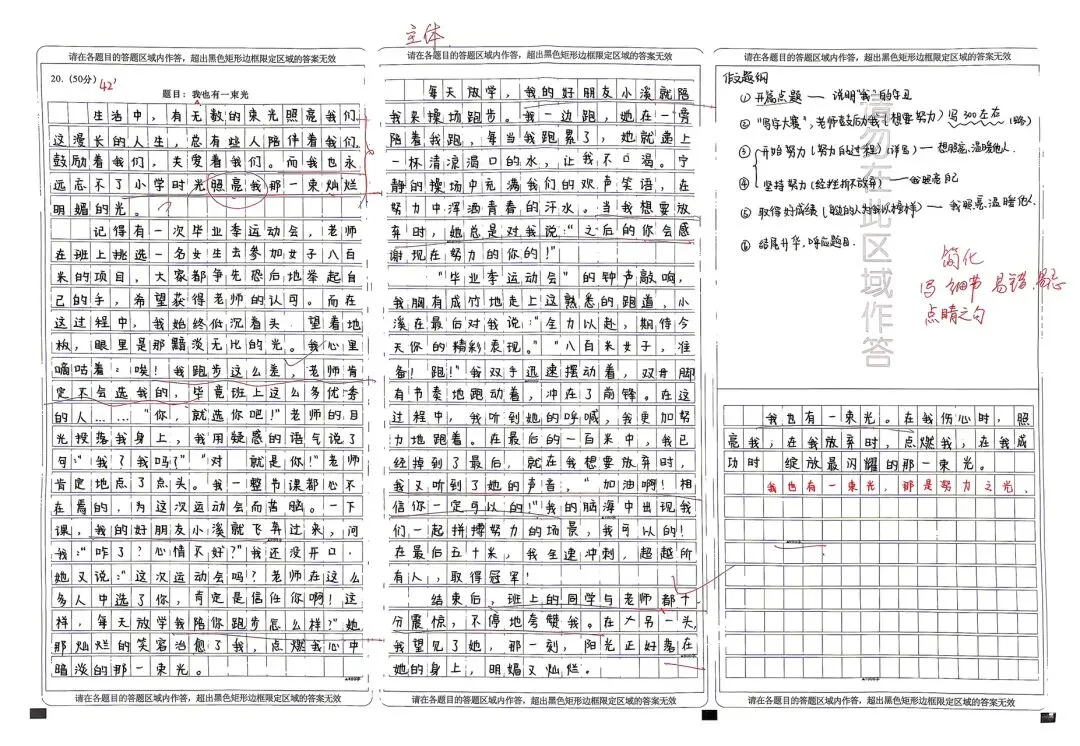 主体
请在各题目的答题区域内作答，超出黑色矩形边框限定区域的答案无效
20.（50分）
42'
题目：我也有一束光
生活中，有无数的束光照亮我们
这漫长的人生，总有些人陪伴着我们
鼓励着我们，关爱着我们。而我也永
远忘不了小学时光照亮我那一束灿烂
明媚的光。
记得有一次毕业季运动会，老师
在班上挑选一名女生去参加女子八百
米的项目，大家都争先恐后地举起自
己的手，希望获得老师的认可。而在
这过程中，我始终低沉着头，望着地
板，眼里是那黯淡无比的光。我心里
嘀咕着：唉！我跑步这么差，老师肯
定不会选我的，毕竟班上这么多优秀
的人……“你，就选你吧！”老师的目
光投落我身上，我用疑惑的语气说了
句：“我？我吗？”“对，就是你！”老师
肯定地点了点头。我一整节课都心不
在焉的，为这次运动会而苦脑。一下
课，我的好朋友小溪就飞奔过来，问
我：“咋了？心情不好？”我还没开口，
她又说：“这次运动会吗？老师在这么
多人中选了你，肯定是信任你啊！这
样，每天放学我陪你跑步怎么样？”她
那灿烂的笑容治愈了我，点燃我心中
暗淡的那一束光。
请在各题目的答题区域内作答，超出黑色矩形边框限定区域的答案无效
请在各题目的答题区域内作答，超出黑色矩形边框限定区域的答案无效
每天放学，我的好朋友小溪就陪
我来操场跑步。我一边跑，她在一旁
陪着我跑，每当我跑累了，她就递上
一杯清凉渴口的水，让我不口渴。宁
静的操场中充满我们的欢声笑语，在
努力中浑洒青春的汗水。当我想要放
弃时，她总是对我说：“之后的你会感
谢现在努力的你的！”
“毕业季运动会”的钟声敲响，
我胸有成竹地走上这熟悉的跑道，小
溪在最后对我说：“全力以赴，期待今
天你的精彩表现。”“八百米女子，准
备！跑！”我双手迅速摆动着，双并脚
有节奏地跑动着，冲在了前锋。在这
过程中，我听到她的呼喊，我更加努
力地跑着。在最后的一百米中，我已
经掉到了最后，就在我想要放弃时，
我又听到了她的声音，“加油啊！相
信你一定可以的！”我的脑海中出现我
们一起拼搏努力的场景，我可以的！
在最后五十米，我全速冲刺，超越所
有人，取得冠军！
结束后，班上的同学与老师都十
分震惊，不停地夸赞我。在人另一头，
我望见了她，那一刻，阳光正好落在
她的身上，明媚又灿烂。
请在各题目的答题区域内作答，超出黑色矩形边框限定区域的答案无效
请在各题目的答题区域内作答，超出黑色矩形边框限定区域的答案无效
请勿在此区域作答
作文题纲
① 开篇点题 — 说明“我”的
② “写字大赛”，老师鼓励我（想要努力）写300左右
③ 开始努力（努力的过程）（详写）— 想照亮、温暖他人.
④ 坚持努力（经挫折不放弃）— 我照亮自己
⑤ 取得好成绩（ 的人为我以榜样）— 我照亮、温暖他人.
⑥ 结尾升华，呼应题目.
简化
写细节 易错.
点睛之句
我也有一束光。在我伤心时，照
亮我，在我放弃时，点燃我，在我成
功时 绽放最闪耀的那一束光。
我也有一束光，那是努力之光，
请在各题目的答题区域内作答，超出黑色矩形边框限定区域的答案无效